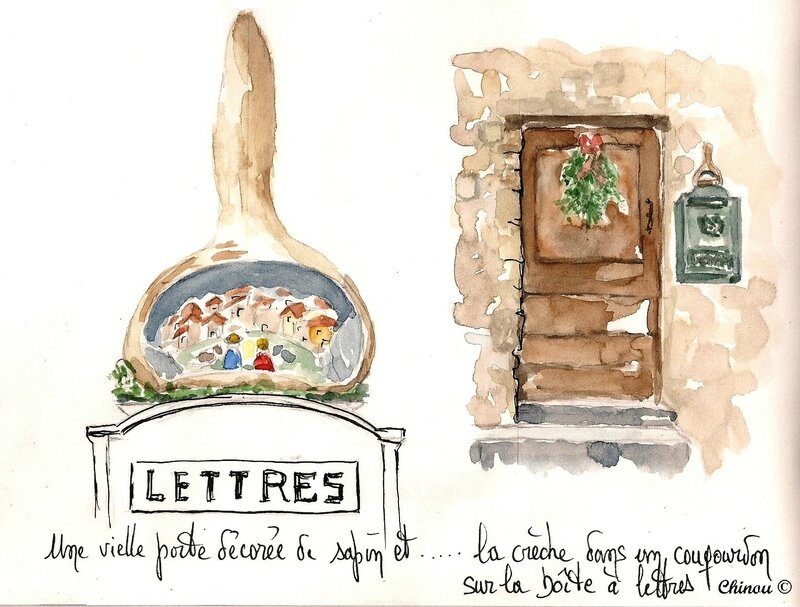 LETTRES
Une vielle porte décorée de sapin et ..... la crèche dans un cougourdon
sur la boîte à lettres Chinou ©